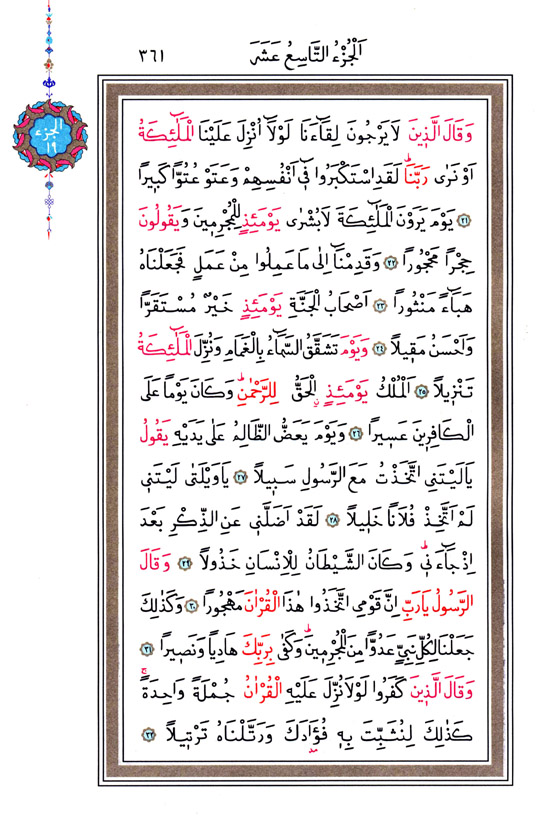 اَلْجُزْءُ التَّاسِعُ عَشَرَ ٣٦١
الجزء
١٩
وَقَالَ الَّذٖينَ لَا يَرْجُونَ لِقَٓاءَنَا لَوْلَٓا اُنْزِلَ عَلَيْنَا الْمَلٰٓئِكَةُ
اَوْ نَرٰى رَبَّنَاۜ لَقَدِ اسْتَكْبَرُوا فٖٓي اَنْفُسِهِمْ وَعَتَوْ عُتُوًّا كَبٖيرًا
﴿٢١﴾ يَوْمَ يَرَوْنَ الْمَلٰٓئِكَةَ لَا بُشْرٰى يَوْمَئِذٍ لِلْمُجْرِمٖينَ وَيَقُولُونَ
حِجْرًا مَحْجُورًا ﴿٢٢﴾ وَقَدِمْنَٓا اِلٰى مَا عَمِلُوا مِنْ عَمَلٍ فَجَعَلْنَاهُ
هَبَٓاءً مَنْثُورًا ﴿٢٣﴾ اَصْحَابُ الْجَنَّةِ يَوْمَئِذٍ خَيْرٌ مُسْتَقَرًّا
وَاَحْسَنُ مَقٖيلًا ﴿٢٤﴾ وَيَوْمَ تَشَقَّقُ السَّمَٓاءُ بِالْغَمَامِ وَنُزِّلَ الْمَلٰٓئِكَةُ
تَنْزٖيلًا ﴿٢٥﴾ اَلْمُلْكُ يَوْمَئِذٍ الْحَقُّ لِلرَّحْمٰنِۜ وَكَانَ يَوْمًا عَلَى
الْكَافِرٖينَ عَسٖيرًا ﴿٢٦﴾ وَيَوْمَ يَعَضُّ الظَّالِمُ عَلٰى يَدَيْهِ يَقُولُ
يَا لَيْتَنِي اتَّخَذْتُ مَعَ الرَّسُولِ سَبٖيلًا ﴿٢٧﴾ يَا وَيْلَتٰى لَيْتَنٖي
لَمْ اَتَّخِذْ فُلَانًا خَلٖيلًا ﴿٢٨﴾ لَقَدْ اَضَلَّنٖي عَنِ الذِّكْرِ بَعْدَ
اِذْ جَٓاءَنٖيۜ وَكَانَ الشَّيْطَانُ لِلْاِنْسَانِ خَذُولًا ﴿٢٩﴾ وَقَالَ
الرَّسُولُ يَا رَبِّ اِنَّ قَوْمِي اتَّخَذُوا هٰذَا الْقُرْاٰنَ مَهْجُورًا ﴿٣٠﴾ وَكَذٰلِكَ
جَعَلْنَا لِكُلِّ نَبِيٍّ عَدُوًّا مِنَ الْمُجْرِمٖينَۜ وَكَفٰى بِرَبِّكَ هَادِيًا وَنَصٖيرًا ﴿٣١﴾
وَقَالَ الَّذٖينَ كَفَرُوا لَوْلَا نُزِّلَ عَلَيْهِ الْقُرْاٰنُ جُمْلَةً وَاحِدَةًۚ
كَذٰلِكَ لِنُثَبِّتَ بِهٖ فُؤَادَكَ وَرَتَّلْنَاهُ تَرْتٖيلًا ﴿٣٢﴾